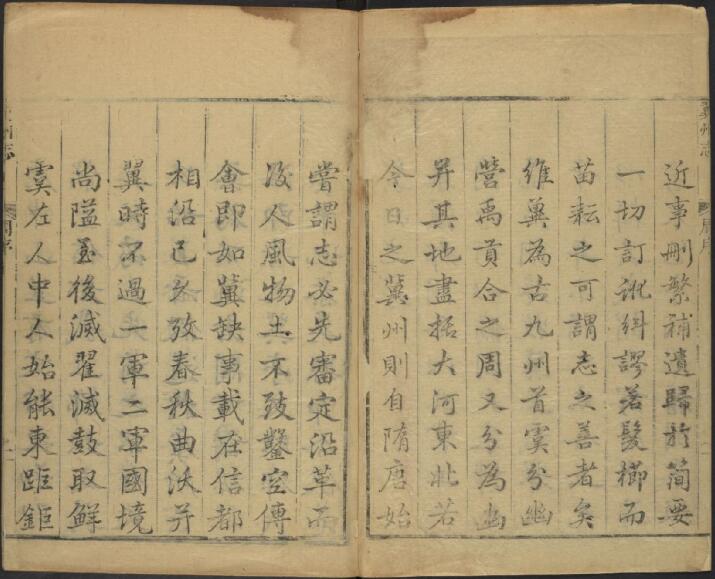 近事刪繁補遺歸於簡要
一切訂訛糾謬若髮櫛而
苗耘之可謂志之善者矣
維冀為古九州首虞分幽
營禹貢合之周又分為幽
并其地盡括大河東北若
今日之冀州則自隋唐始
嘗謂志必先審定沿革而
後人風物土不致鑿空傳
會即如冀缺事載在信都
相沿已久攷春秋曲沃并
翼時不過一軍二軍國境
尚隘至後滅翟滅鼓取鮮
虞左人中人始能東距鉅
冀州志
周序
州志
周序